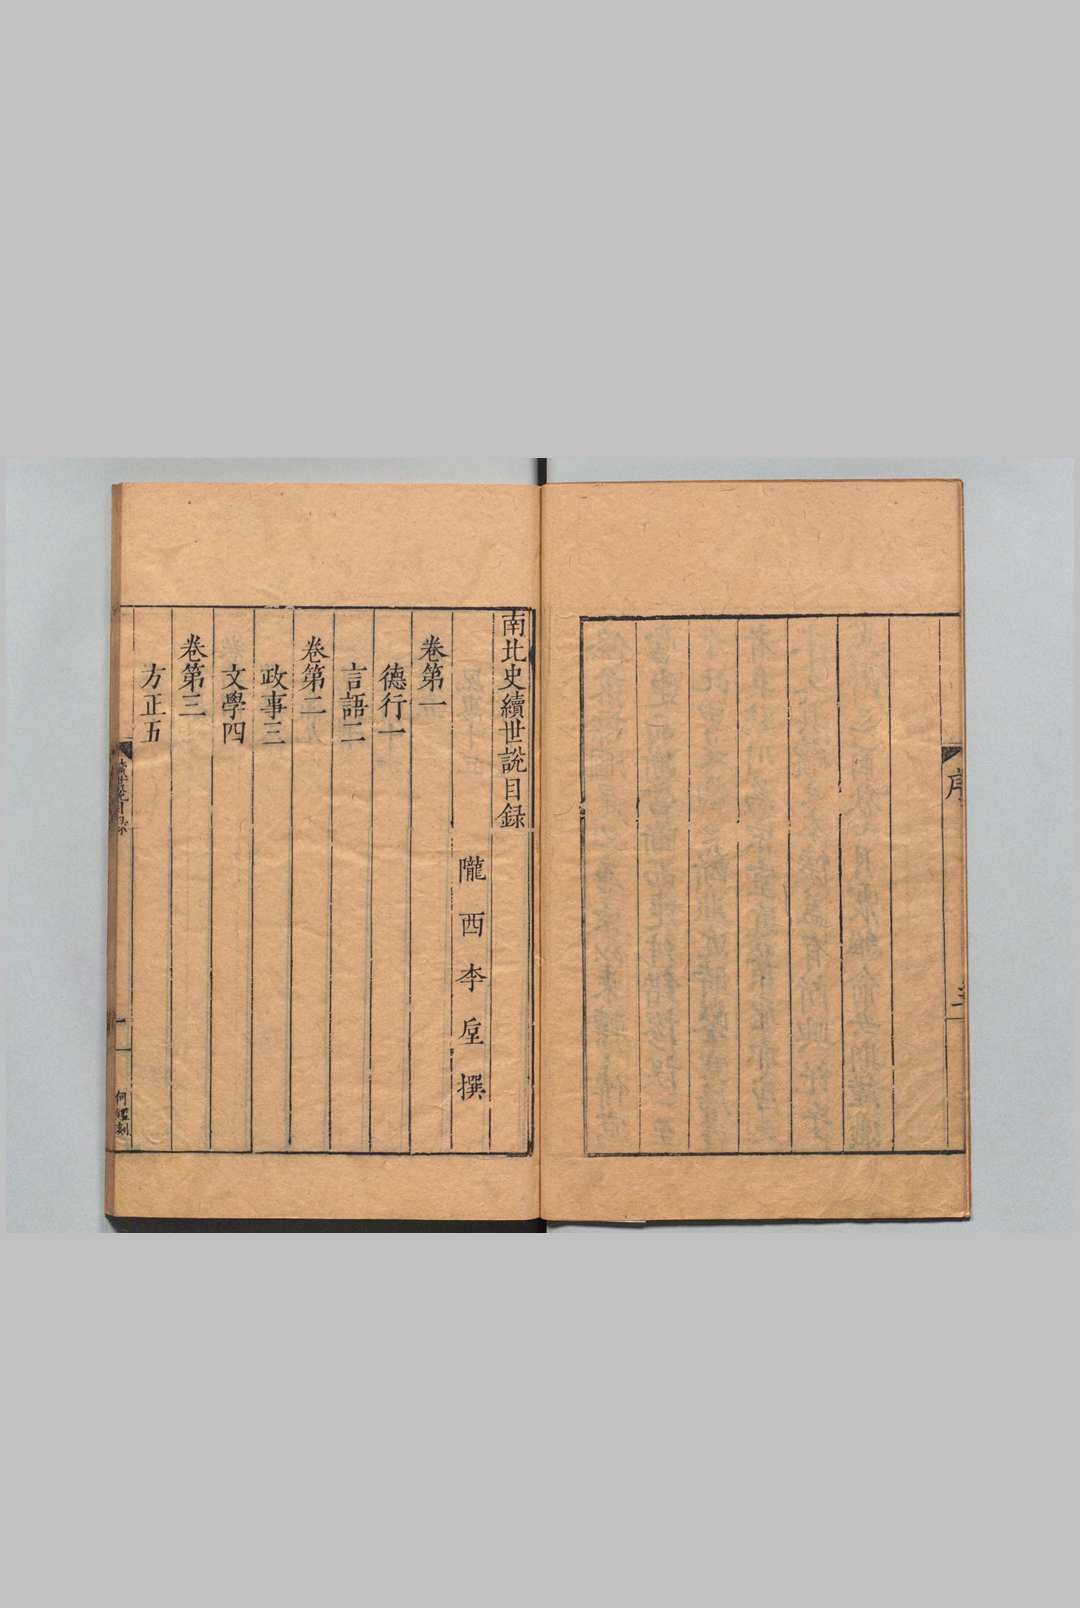 序
南北史續世說目録
隴西李垕撰
卷第一
德行一
言語二
卷第二
政事三
文學四
卷第三
方正五
續世說目録
一
何鑑刻